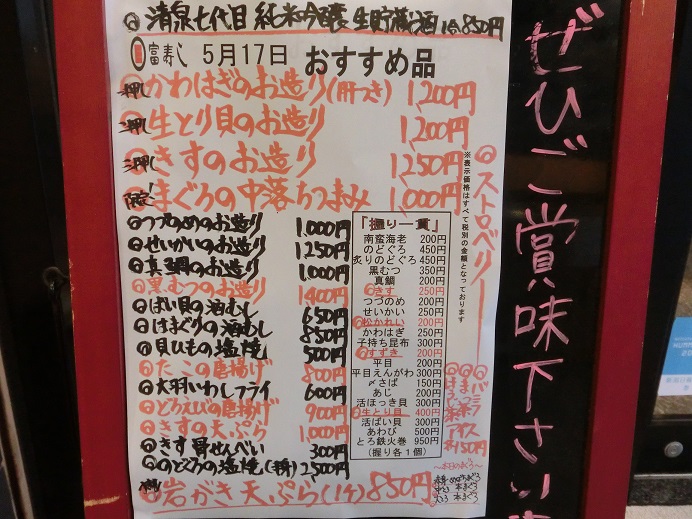 ◎清泉七代目 純米吟醸 生貯蔵酒 1合850円
富寿し 5月17日 おすすめ品
一押し かわはぎのお造り(肝つき) 1,200円
二押し 生とり貝のお造り 1,200円
三押し きすのお造り 1,250円
限定! まぐろの中落ちつまみ 1,000円
◎つづのめのお造り 1,000円
◎せいかいのお造り 1250円
◎真鯛のお造り 1,000円
◎黒むつのお造り 1400円
◎ばい貝の酒むし 650円
◎はまぐりの酒むし 850円
◎貝ひもの塩焼 500円
◎たこの唐揚げ 800円
◎大羽いわしフライ 600円
◎どろえびの唐揚げ 900円
◎きすの天ぷら 1,000円
◎きす骨せんべい 300円
◎のどぐろの塩焼(一尾) 2,500円
◎岩がき天ぷら(1ケ)850円
「握り一貫」
南蛮海老 200円
のどぐろ 450円
炙りのどぐろ 450円
黒むつ 350円
真鯛 200円
◎きす 250円
つづのめ 200円
せいかい 250円
◎松かれい 200円
かわはぎ 250円
子持ち昆布 300円
◎すずき 200円
平目 200円
平目えんがわ 300円
〆さば 150円
あじ 200円
活ほっき貝 300円
◎生とり貝 400円
活ばい貝 300円
あわび 500円
とろ鉄火巻 950円
(握り各1個)
※表示価格はすべて税別の金額となっております
◎ストロベリー
◎バニラ
◎まっ茶
アイス
各150円
～本日のまぐろ～
本まぐろ
本まぐろ
ぜひご賞味下さい